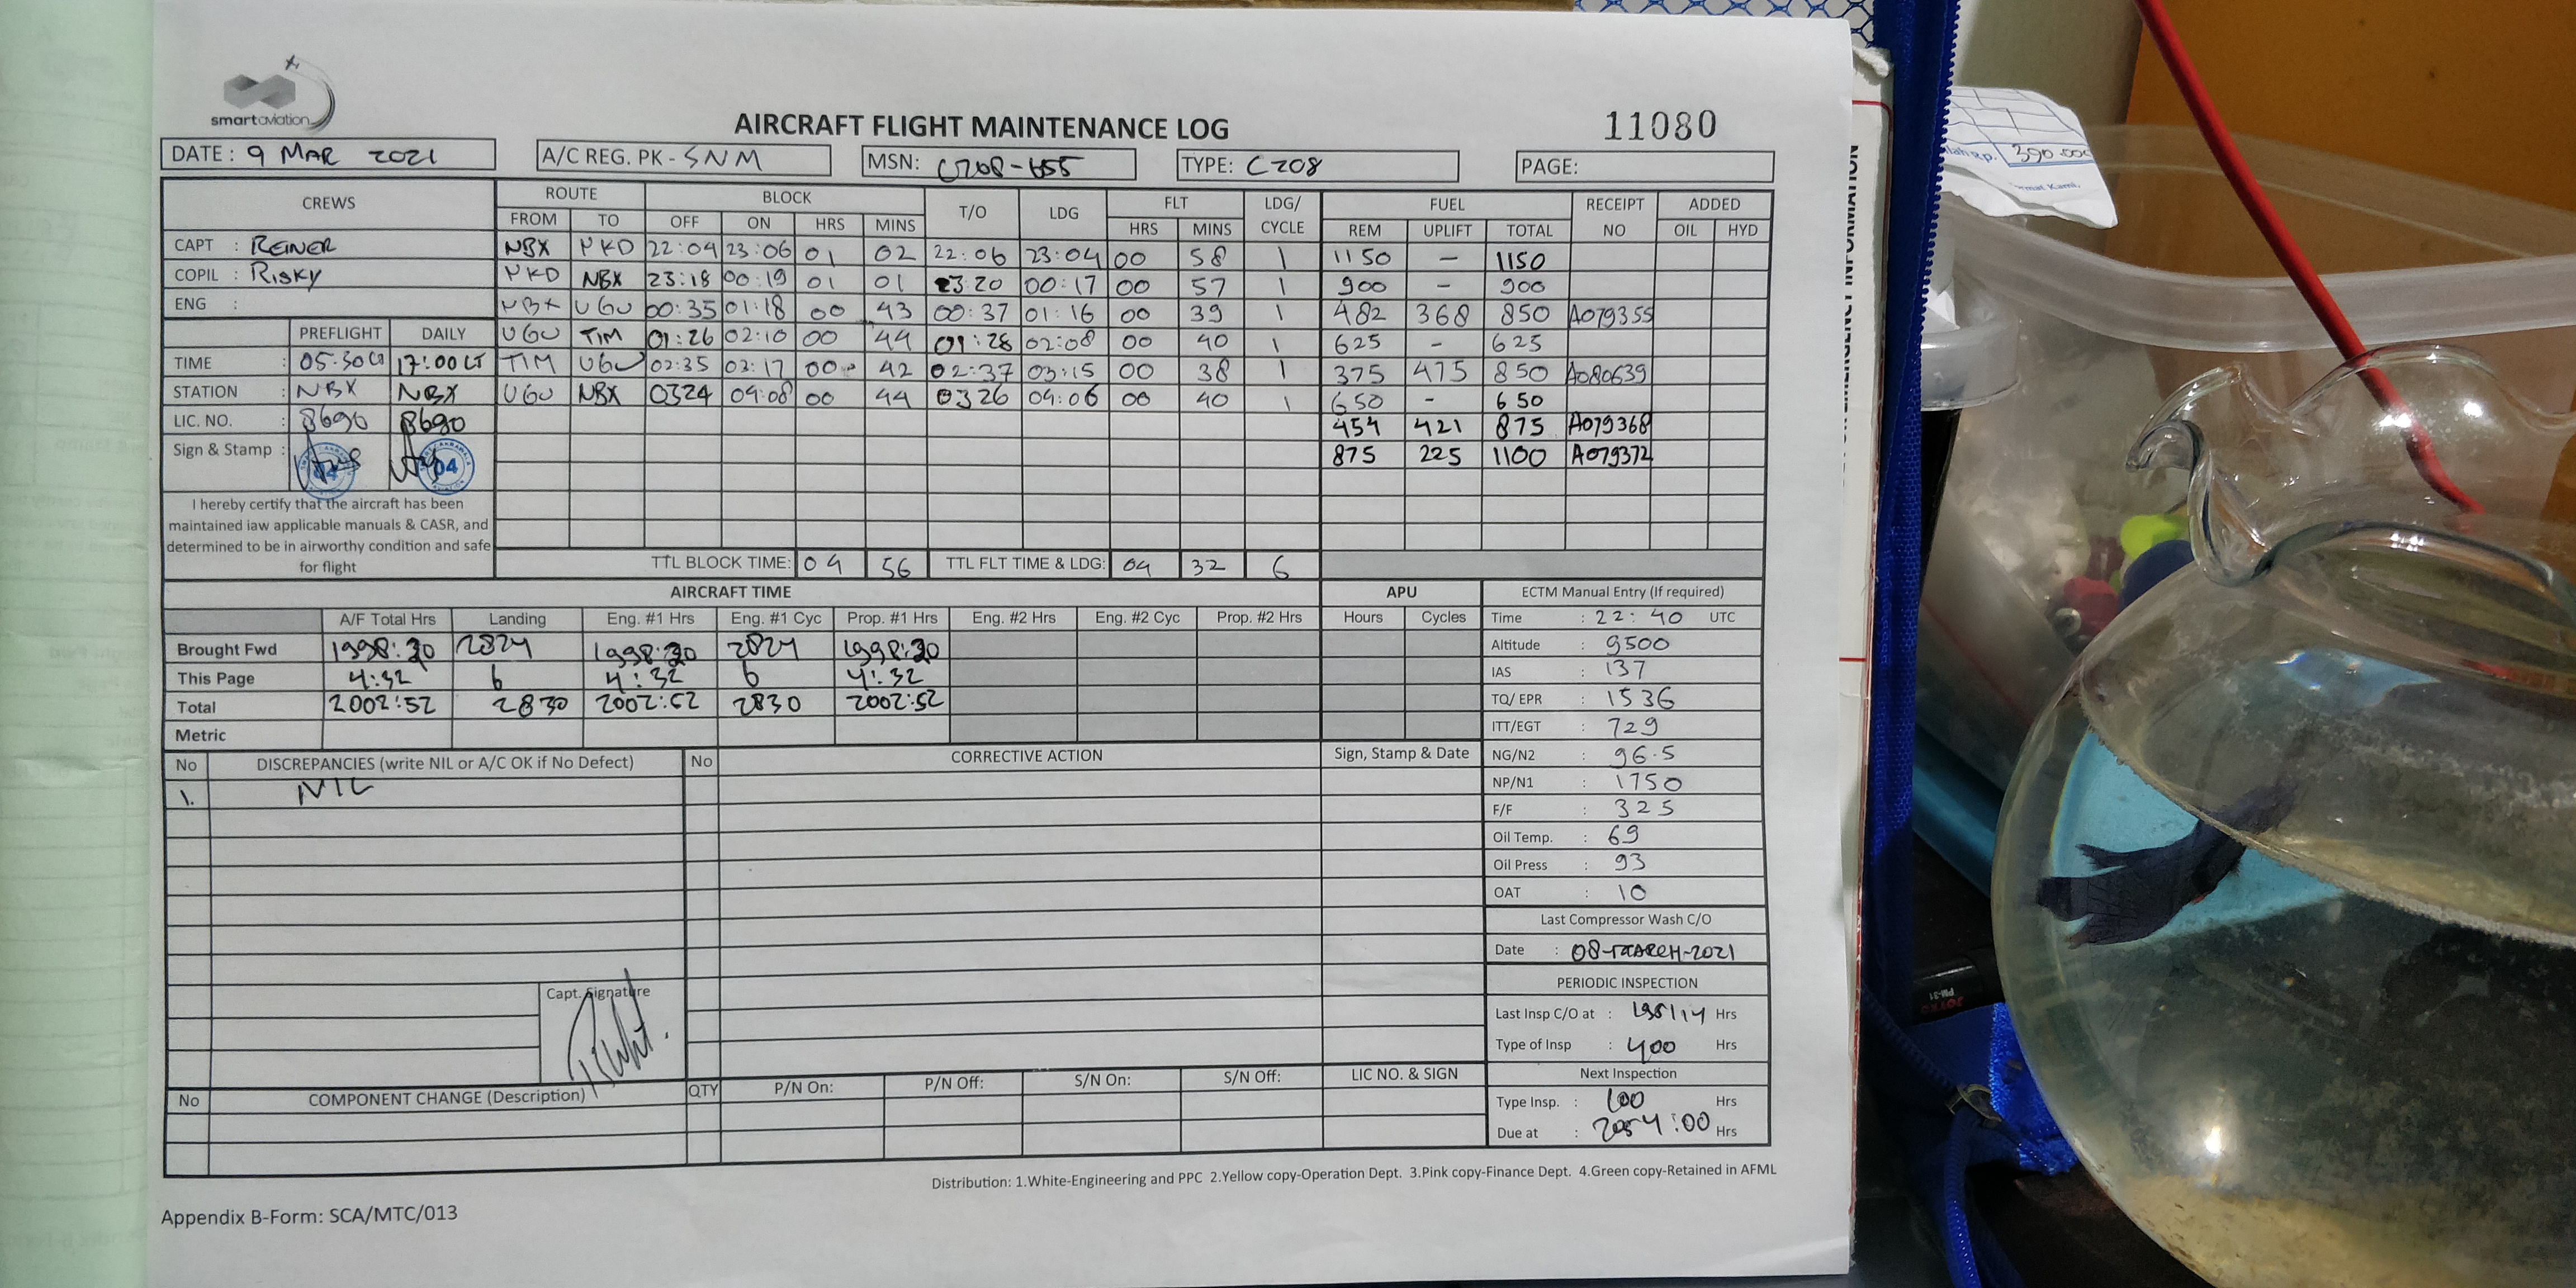 smartaviation
AIRCRAFT FLIGHT MAINTENANCE LOG
11080
DATE : 9 MAR 2021 A/C REG. PK - SNM MSN: C208-655 TYPE: C208 PAGE:
CREWS ROUTE BLOCK T/O LDG FLT LDG/ CYCLE FUEL RECEIPT NO ADDED
FROM TO OFF ON HRS MINS HRS MINS REM UPLIFT TOTAL OIL HYD
CAPT : REINER NBX YKD 22:04 23:06 01 02 22:06 23:04 00 58 1 1150 - 1150
COPIL : RISKY YKD NBX 23:18 00:19 01 01 23 20 00:17 00 57 1 900 - 900
ENG : NBX UGU 00:35 01:18 00 43 00:37 01:16 00 39 1 482 368 850 A079355
PREFLIGHT DAILY UGU TIM 01:26 02:10 00 44 01:28 02:08 00 40 1 625 - 625
TIME : 05:30 LT 17:00 LT TIM UGU 02:35 03:17 00 42 02:37 03:15 00 38 1 375 475 850 A080639
STATION : NBX NBX UGU NBX 0324 04:08 00 44 0326 04:06 00 40 1 650 - 650
LIC. NO. : 8690 8690 454 421 875 A079368
Sign & Stamp : 04 04 875 225 1100 A079372
I hereby certify that the aircraft has been
maintained iaw applicable manuals & CASR, and
determined to be in airworthy condition and safe
for flight
TTL BLOCK TIME: 04 56 TTL FLT TIME & LDG: 04 32 6
AIRCRAFT TIME APU
A/F Total Hrs Landing Eng. #1 Hrs Eng. #1 Cyc Prop. #1 Hrs Eng. #2 Hrs Eng. #2 Cyc Prop. #2 Hrs Hours Cycles
Brought Fwd 1998:20 2824 1998:20 2824 1998:20
This Page 4:32 6 4:32 6 4:32
Total 2002:52 2830 2002:52 2830 2002:52
Metric
No DISCREPANCIES (write NIL or A/C OK if No Defect) No CORRECTIVE ACTION Sign, Stamp & Date
1. NIL
Capt. Signature
No COMPONENT CHANGE (Description) QTY P/N On: P/N Off: S/N On: S/N Off: LIC NO. & SIGN
ECTM Manual Entry (If required)
Time : 22:40 UTC
Altitude : 9500
IAS : 137
TQ/ EPR : 1536
ITT/EGT : 729
NG/N2 : 96.5
NP/N1 : 1750
F/F : 325
Oil Temp. : 69
Oil Press : 93
OAT : 10
Last Compressor Wash C/O
Date : 08-MARCH-2021
PERIODIC INSPECTION
Last Insp C/O at : Hrs
Type of Insp : 400 Hrs
Next Inspection
Type Insp. : 100 Hrs
Due at : 2054:00 Hrs
Distribution: 1.White-Engineering and PPC 2.Yellow copy-Operation Dept. 3.Pink copy-Finance Dept. 4.Green copy-Retained in AFML
Appendix B-Form: SCA/MTC/013
390.000